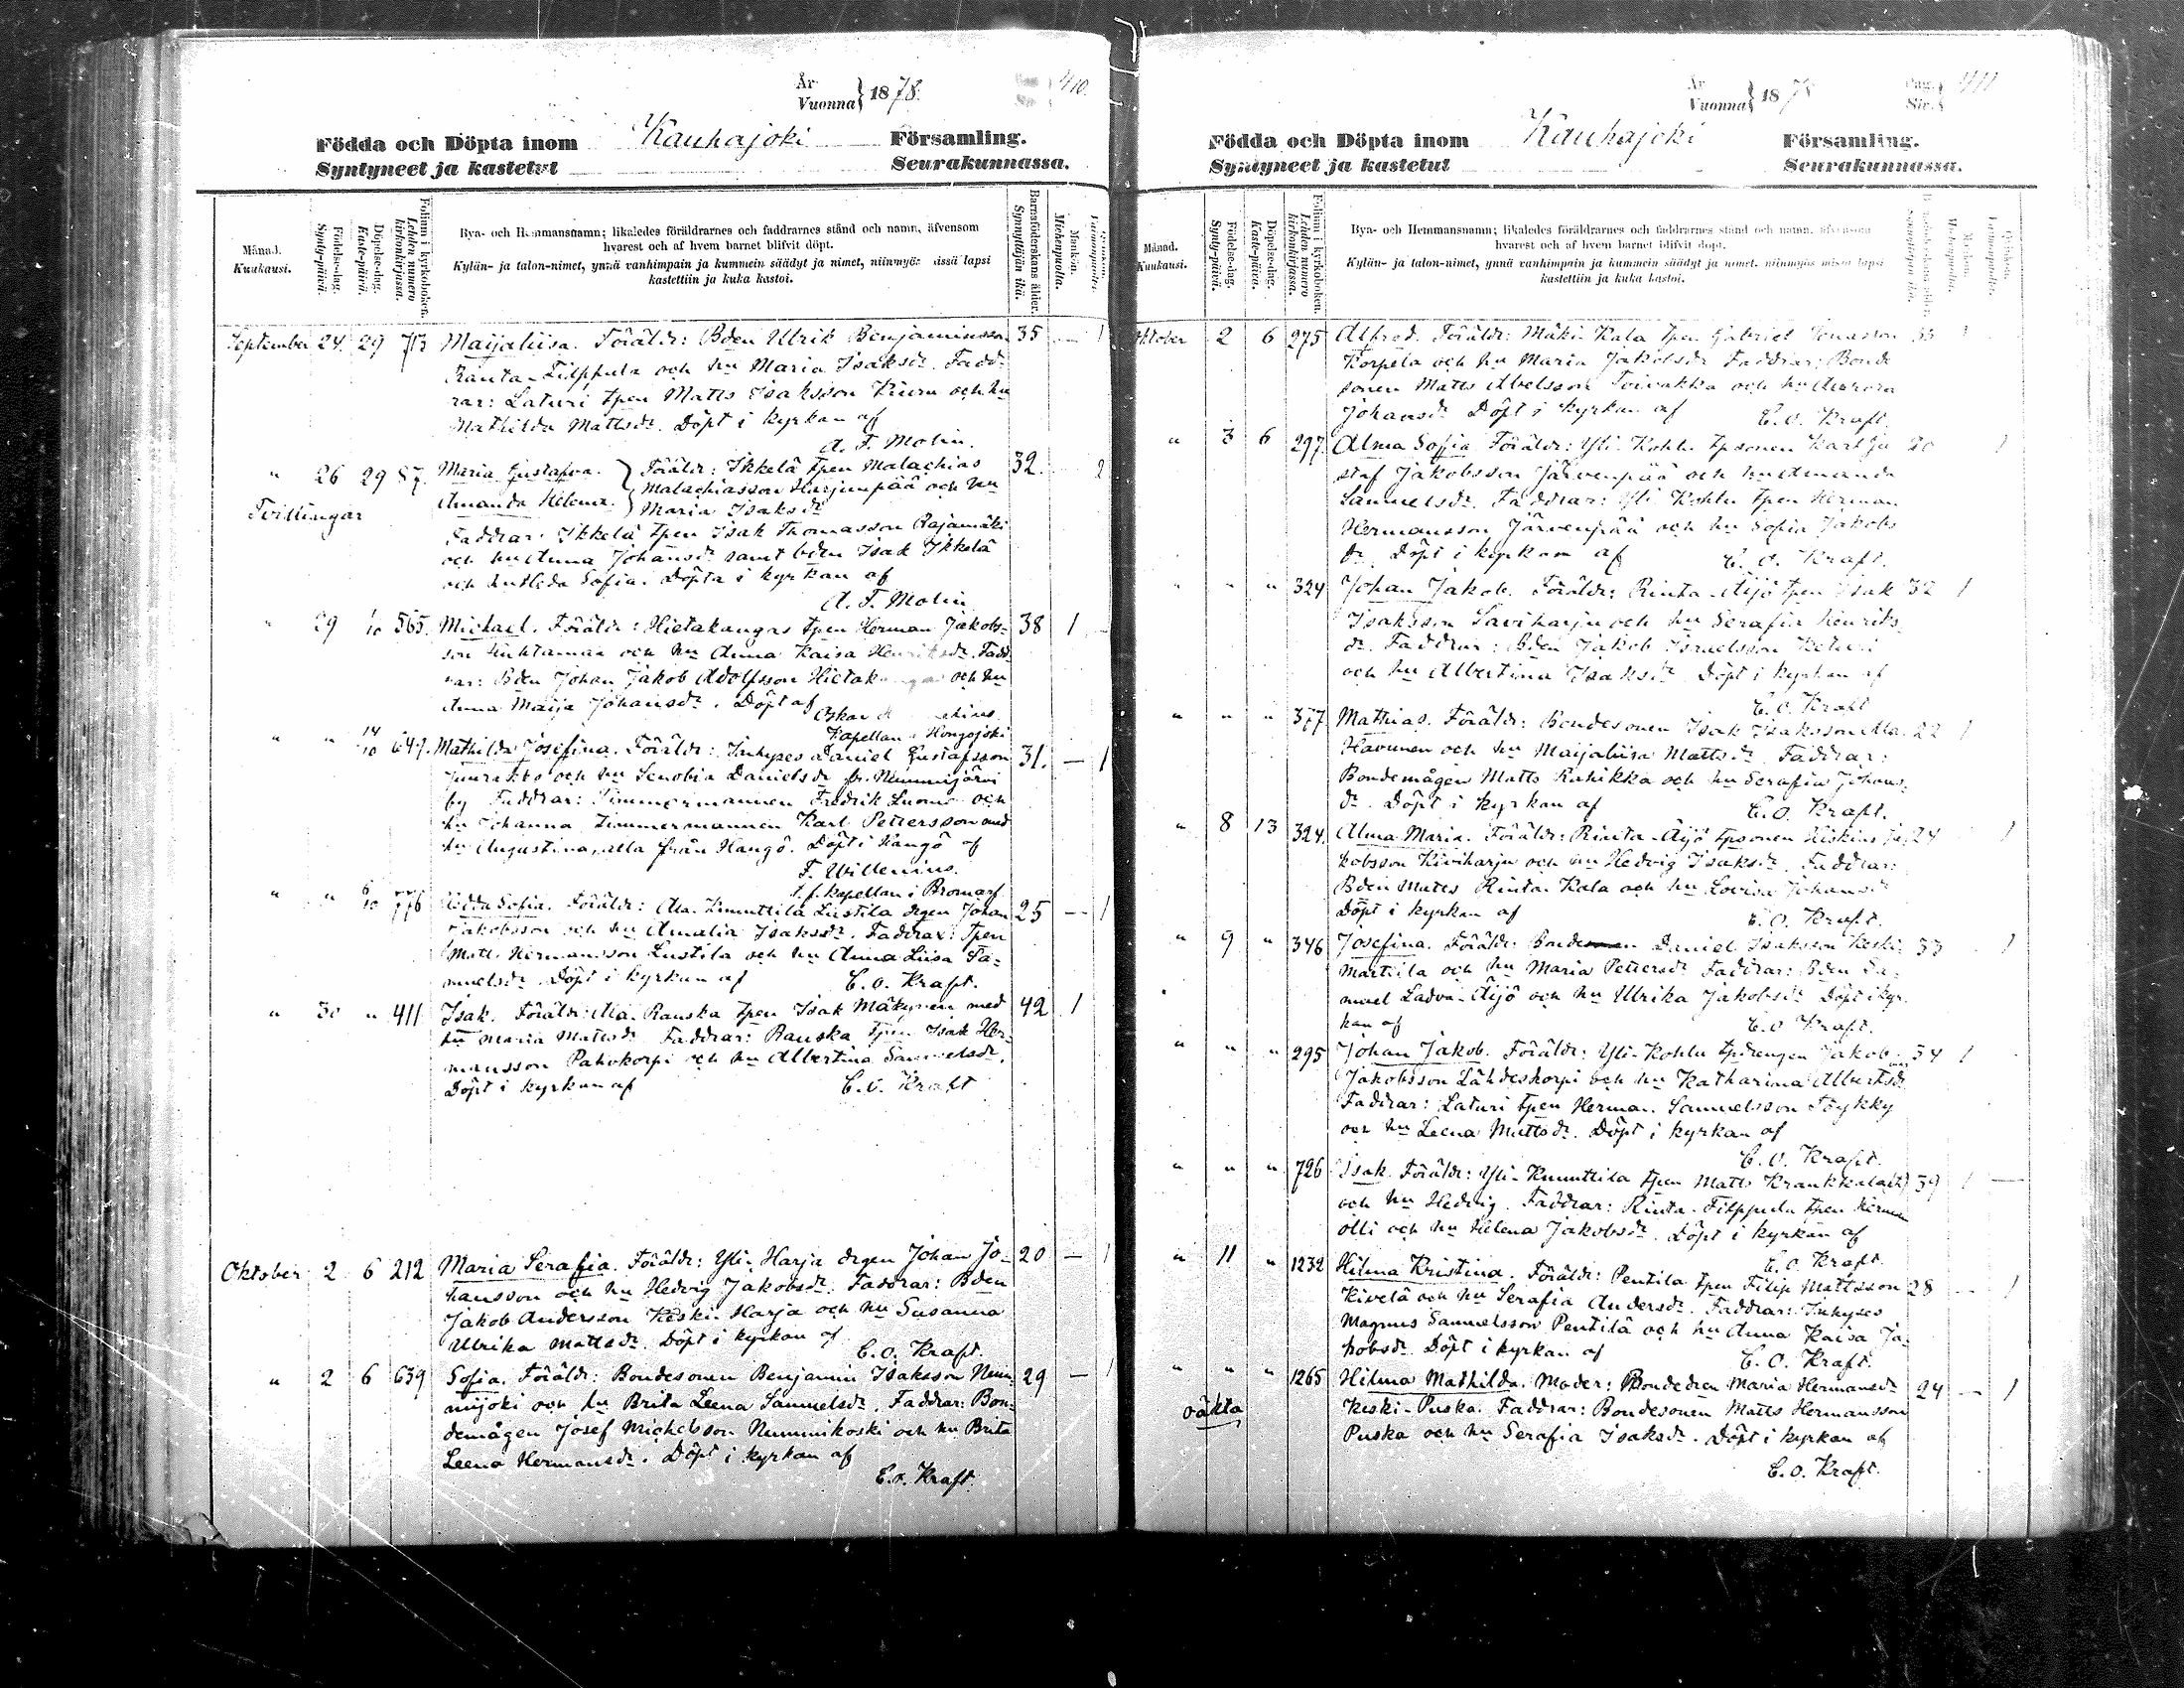 År
Vuonna } 1878.
410.
Födda och Döpta inom Kauhajoki Församling.
Syntyneet ja kastetut Seurakunnassa.
Månad.
Kuukausi.
Födelse-dag.
Synty-päivä.
Döpelse-dag.
Kaste-päivä.
Folium i kyrkoboken.
Lehden numero kirkonkirjassa.
Bya- och Hemmansnamn; likaledes föräldrarnes och faddrarnes stånd och namn, äfvensom
hvarest och af hvem barnet blifvit döpt.
Kylän- ja talon-nimet, ynnä vanhimpain ja kummein säädyt ja nimet, niinmyös missä lapsi
kastettiin ja kuka kastoi.
Barnaföderskans ålder.
Synnyttäjän ikä.
Mankön.
Miehenpuolia.
September 24. 29 713 Maijaliisa. Föräldr: Bden Ulrik Benjaminsson 35 — 1
Ranta-Filppula och hu Maria Isaksdr. Fadd-
rar: Laturi tpen Matts Isaksson Kiuru och hu
Mathilda Mattsdr. Döpt i kyrkan af
A. F. Molin.
" 26 29 87. Maria Gustafva. } Föräldr: Ikkelä tpen Malachias 32. — 2
Tvillingar Amanda Helena. } Malachiasson Harjunpää och hu
Maria Isaksdr
Faddrar: Ikkelä tpen Isak Thomasson Rajamäki
och hu Anna Johansdr samt bden Isak Ikkelä
och Sofia. Döpta i kyrkan af
A. F. Molin
" 29 1/10 565. Michael. Föräldr: Hietakangas tpen Herman Jakobs- 38 1 —
son och hu Anna Kaisa Henriksdr. Fadd-
rar: Bden Johan Jakob Adolfsson och hu
Anna Maija Johansdr. Döpt af
Oskar
Kapellan i Hongojoki
" " 14/10 647. Mathilda Josefina. Föräldr: Inhyses Daniel Gustafsson 31. — 1
Juurakko och hu Senobia Danielsdr fr. Nummijärvi
by Faddrar: Timmermannen Fredrik Luoma och
hu Johanna Timmermannen Karl Pettersson med
hu Augustina, alla från Hangö. Döpt i Hangö af
F. Willenius.
t. f. kapellan i Bromarf.
" " 6/10 776 Sofia. Föräldr: Ala. Knuuttila Lustila drgen Johan 25 — 1
Jakobsson och hu Amalia Isaksdr. Faddrar: Tpen
Matts Hermansson Lustila och hu Anna Liisa Sa-
muelsdr. Döpt i kyrkan af C. O. Kraft.
" 30 " 411 Isak. Föräldr: Ala. Rauska tpen Isak Mäkynen med 42 1
hu Maria Mattsdr. Faddrar: Rauska tpen Isak Her-
mansson Pahvkorpi och hu Albertina Samuelsdr.
Döpt i kyrkan af C. O. Kraft
Oktober 2 6 212 Maria Serafia. Föräldr: Yli-Harja drgen Johan Jo- 20 — 1
hansson och hu Hedvig Jakobsdr. Faddrar: Bden
Jakob Andersson Keski-Harja och hu Susanna
Ulrika Mattsdr. Döpt i kyrkan af
C. O. Kraft.
" 2 6 639 Sofia. Föräldr: Bondesonen Benjamin Isaksson Num- 29 — 1
mijoki och hu Brita Leena Samuelsdr. Faddrar: Bon-
demågen Josef Michelsson Nummikoski och hu Brita
Leena Hermansdr. Döpt i kyrkan af
C. O. Kraft.
År
Vuonna } 1878
Pag.
Siv. } 411
Födda och Döpta inom Kauhajoki Församling.
Syntyneet ja kastetut Seurakunnassa.
Månad.
Kuukausi.
Födelse-dag.
Synty-päivä.
Döpelse-dag.
Kaste-päivä.
Folium i kyrkoboken.
Lehden numero kirkonkirjassa.
Bya- och Hemmansnamn; likaledes föräldrarnes och faddrarnes stånd och namn, äfvensom
hvarest och af hvem barnet blifvit döpt.
Kylän- ja talon-nimet, ynnä vanhimpain ja kummein säädyt ja nimet, niinmyös missä lapsi
kastettiin ja kuka kastoi.
Oktober 2 6 275 Alfred. Föräldr: Mäki-Kala tpen Gabriel Jonasson 33 1
Korpela och hu Maria Jakobsdr Faddrar: Bonde
sonen Matts Abelsson Toivakka och hu Aurora
Johansdr Döpt i kyrkan af C. O. Kraft.
" 3 6 297 Alma Sofia Föräldr: Yli-Kohlu tpsonen Karl Gu 20 1
staf Jakobsson Järvenpää och hu Amanda
Samuelsdr. Faddrar: Yli Kohlu tpen Herman
Hermansson Järvenpää och hu Sofia Jakobs
dr. Döpt i kyrkan af C. O. Kraft.
" " " 324 Johan Jakob. Föräldr: Rinta-Äijö tpen Isak 32 1
Isaksson Saviharju och hu Serafia Henriks
dr. Faddrar: Bden Jakob Israelsson
och hu Albertina Isaksdr. Döpt i kyrkan af
C. O. Kraft
" " " 377 Mathias. Föräldr: Bondesonen Isak Isaksson Ala. 22 1
Havunen och hu Maijaliisa Mattsdr. Faddrar:
Bondemågen Matts Rahikka och hu Serafia Johans-
dr. Döpt i kyrkan af C. O. Kraft.
" 8 13 324. Alma Maria. Föräldr: Rinta-Äijö tpsonen Hiskias Ja- 24 1
kobsson Kiviharju och hu Hedvig Isaksdr. Faddrar:
Bden Matts Rinta-Kala och hu Lovisa Johansdr
Döpt i kyrkan af C. O. Kraft.
" 9 " 346 Josefina. Föräldr: Bonden Daniel Isaksson Keski- 33 1
Marttila och hu Maria Pettersdr Faddrar: Bden Sa-
muel Ladva-Äijö och hu Ulrika Jakobsdr Döpt i kyr-
kan af C. O. Kraft.
" " " 295 Johan Jakob. Föräldr: Yli-Kohlu tpdrengen Jakob 34 1
Jakobsson Lähdeskorpi och hu Katharina Albertsdr
Faddrar: Laturi tpen Herman Samuelsson Töykky
och hu Leena Mattsdr. Döpt i kyrkan af
C. O. Kraft.
" " " 726 Isak. Föräldr: Yli-Knuuttila tpen Matts Krankkala 39 1 —
och hu Hedvig. Faddrar: Rinta-Filppula tpen Herman
Olli och hu Helena Jakobsdr. Döpt i kyrkan af
C. O. Kraft.
" 11 " 1232 Hilma Kristina. Föräldr: Pentilä tpen Filip Mattsson 28 — 1
Kivelä och hu Serafia Andersdr. Faddrar: Inhyses
Magnus Samuelsson Pentilä och hu Anna Kaisa Ja-
kobsdr. Döpt i kyrkan af C. O. Kraft.
" " " 1265 Hilma Mathilda. Moder: Bondedren Maria Hermansdr 24 — 1
oäkta Keski-Puska. Faddrar: Bondesonen Matts Hermansson
Puska och hu Serafia Isaksdr. Döpt i kyrkan af
C. O. Kraft.